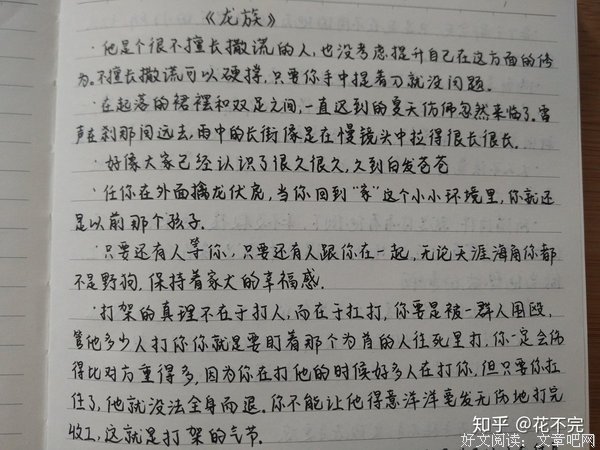 《龙族》
·他是个很不擅长撒谎的人,也没考虑提升自己在这方面的修
为。不擅长撒谎可以硬撑,只要你手中提着刀就没问题。
·在起落的裙摆和双足之间,一直迟到的夏天仿佛忽然来临了。雷
声在刹那间远去,雨中的长街像是在慢镜头中拉得很长很长。
·好像大家已经认识了很久很久,久到白发苍苍
·任你在外面擒龙伏虎,当你回到“家”这个小小环境里,你就还
是以前那个孩子.
·只要还有人等你,只要还有人跟你在一起,无论天涯海角你都
不是野狗,保持着家犬的幸福感.
·打架的真理不在于打人,而在于扛打,你要是被一群人围殴,
管他多少人打你你就是要盯着那个为首的人往死里打,你一定会伤
得比对方重得多,因为你在打他的时候好多人在打你,但只要你扛
住了,他就没法全身而退。你不能让他得意洋洋毫发无伤地打完
收工,这就是打架的气节.
知乎 @花不完
好文阅读:文章吧网